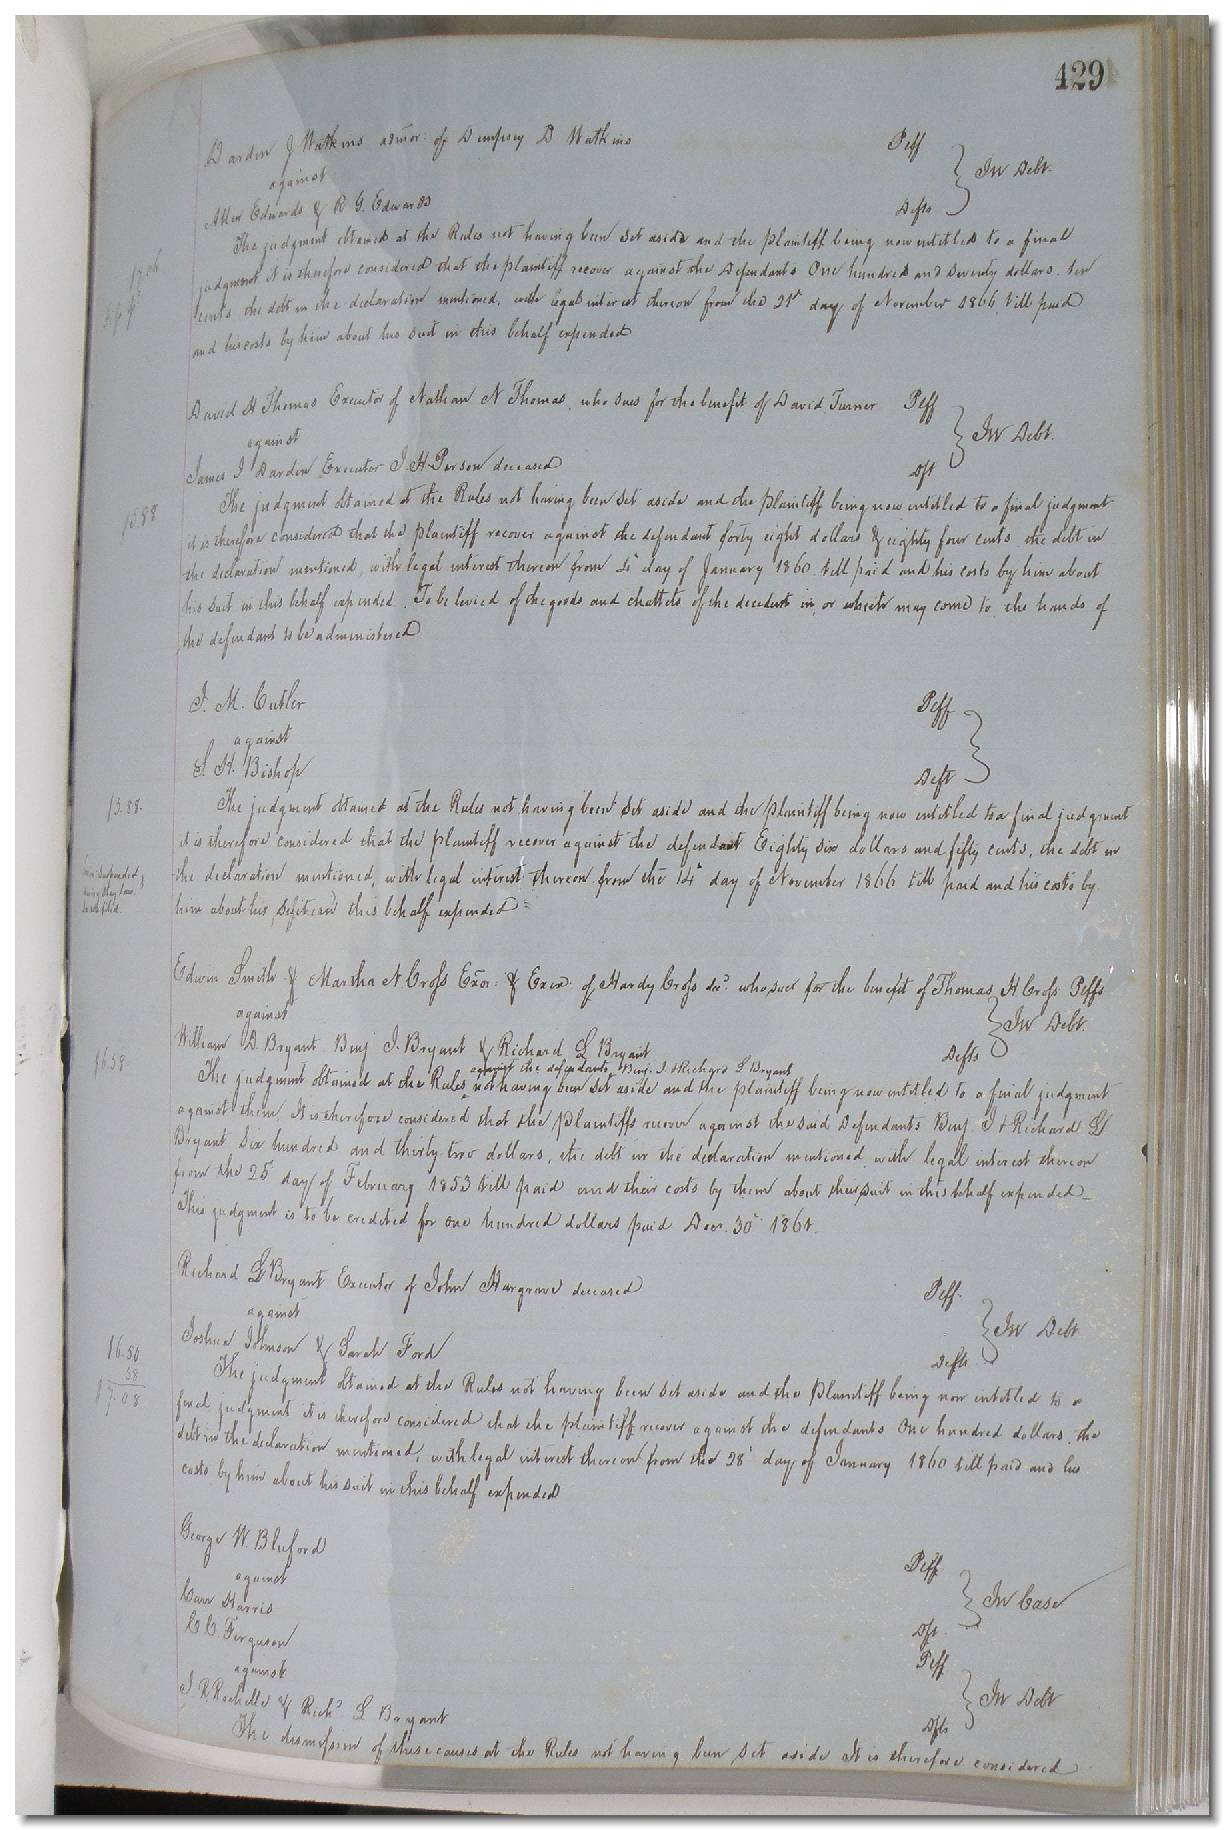 429
Darden J Watkins admor. of Dempsey D Watkins Plff
against In Debt.
Edwards & R G. Edwards Defts
The judgment obtained at the Rules not having been set aside and the plaintiff being now entitled to a final
judgment it is therefore considered that the plaintiff recover against the Defendants One hundred and seventy dollars ten
cents, the debt in the declaration mentioned, with legal interest thereon from the 21st day of November 1866, till paid
and his costs by him about his suit in this behalf expended
David H Thomas Executor of Nathan N Thomas, who sues for the benefit of David Turner Plff
against In Debt.
James J Darden Executor J. H. Person deceased Dft
15.88
The judgment obtained at the Rules not having been set aside and the plaintiff being now entitled to a final judgment
it is therefore considered that the plaintiff recover against the defendant forty eight dollars & eighty four cents, the debt in
the declaration mentioned, with legal interest thereon from day of January 1860 till paid and his costs by him about
his suit in this behalf expended. To be levied of the goods and chattels of the decedent in, or which may come to the hands of
the defendant to be administered
J. M. Cutler Plff
against
S H. Bishop Deft
13.88.
The judgment obtained at the Rules not having been set aside and the plaintiff being now entitled to a final judgment
it is therefore considered that the plaintiff recover against the defendant Eighty six dollars and fifty cents, the debt in
the declaration mentioned, with legal interest thereon from the 14th day of November 1866 till paid and his costs by
him about his in this behalf expended
Edwin Smith & Martha N Cross Exor. & Exex. of Hardy Cross decd. who sues for the benefit of Thomas H Cross Plffs
against In Debt.
William D. Bryant, Benj J. Bryant & Richard L Bryant Defts
16.58
against the defendants, Benj. J & Richard L Bryant
The judgment obtained at the Rules not having been set aside and the plaintiff being now entitled to a final judgment
against them, It is therefore considered that the Plaintiffs recover against the said Defendants Benj. J & Richard L
Bryant Six hundred and thirty-two dollars, the debt in the declaration mentioned, with legal interest thereon
from the 25 day of February 1853 till paid and their costs by them about their suit in this behalf expended
This judgment is to be credited for one hundred dollars paid Decr. 30 1861.
Richard L Bryant Executor of John Hargrave deceased Plff.
against In Debt
Joshua Johnson & Sarah Ford Defts
16.50
58
17.08
The judgment obtained at the Rules not having been set aside and the plaintiff being now entitled to a
final judgment it is therefore considered that the plaintiff recover against the defendants One hundred dollars, the
debt in the declaration mentioned, with legal interest thereon from the 28th day of January 1860 till paid and his
costs by him about his suit in this behalf expended
George W. Bluford Plff
against In Case
Harris Dft.
C. C. Ferguson Plff
against In Debt
J R Rochelle & Richd L Bryant Dfts
The dismission of these causes at the Rules not having been set aside It is therefore considered